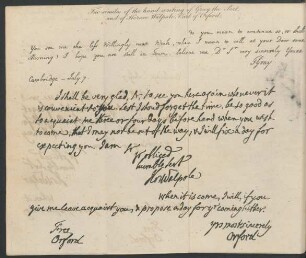 Fac similes of the hand writing of Gray the Poet,
and of Horace Walpole, Earl of Orford.
you mean to continue so, or shall
You see me who life Willingly next Week, when I mean to call at your Door some
Morning: I hope you are well in Town, believe me Dr Sr very sincerely Yours
TGray
Cambridge - July 9
I shall be very glad Sr to see you here again, whenever it
is convenient to you: lest I should forget the time, be so good as
to acquaint me three or four days before hand when you wish
to come, that I may not be out of the way, & I will fix a day for
expecting you. I am Sr
Yr obliged
humble Sert
Hor Walpole
When it is come, I will, if you
give me leave acquaint you, & propose a day for yr coming hither.
Free
Orford
yrs most sincerely
Orford